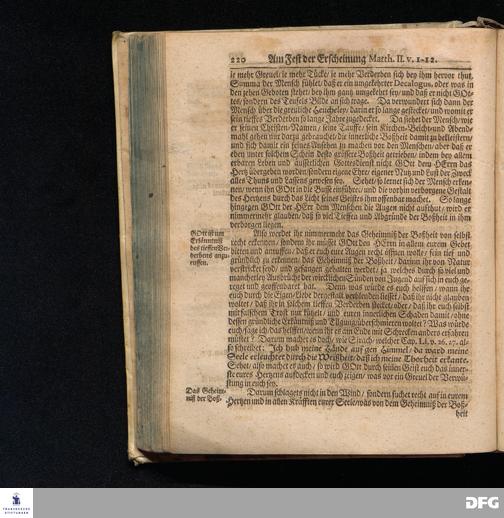 220 Am Fest der Erscheinung Matth. II. v. 1-12.
je mehr Greuel/ je mehr Tücke/ je mehr Verderben sich bey ihm hervor thut.
Summa der Mensch fühlet/ daß er ein umgekehrter Decalogus, oder was in
den zehen Geboten stehet/ bey ihm gantz umgekehrt sey/ und daß er nicht GOt-
tes/ sondern des Teufels Bilde an sich trage. Da verwundert sich dann der
Mensch über die greuliche Heucheley/ darin er so lange gestecket/ und womit er
sein tieffes Verderben so lange Jahre zugedecket. Da siehet der Mensch/ wie
er seinen Christen-Namen/ seine Tauffe/ sein Kirchen-Beicht- und Abend-
mahl gehen nur darzu gebrauchet/ die innerliche Boßheit damit zu bekleistern/
und sich damit ein feines Ansehen zu machen vor den Menschen/ aber daß er
eben unter solchem Schein desto grössere Boßheit getrieben/ indem bey allem
erbaren Leben und äusserlichen Gottesdienst nicht GOtt dem HErrn das
Hertz übergeben worden/ sondern eigene Ehre/ eigener Nutz und Lust der Zweck
alles Thuns und Lassens gewesen sey. Sehet/ so lernet sich der Mensch erken-
nen/ wenn ihn GOtt in die Busse einführet/ und die vorhin verborgene Gestalt
des Hertzens durch das Licht seines Geistes ihm offenbar machet. So lange
hingegen GOtt der HErr dem Menschen die Augen nicht aufthut/ wird er
nimmermehr glauben/ daß so viel Tieffen und Abgründe der Boßheit in ihm
verborgen liegen.
GOtt ist um
Erkäntniß
des tieffen Ver-
derbens anzu-
ruffen.
Also werdet ihr nimmermehr das Geheimniß der Boßheit von selbst
recht erkennen/ sondern ihr müsset GOtt den HErrn in allem eurem Gebet
bitten und anruffen/ daß er euch eure Augen recht öffnen wolle/ fein tief und
gründlich zu erkennen/ das Geheimniß der Boßheit/ darin ihr von Natur
verstricket seyd/ und gefangen gehalten werdet/ ja welches durch so viel und
mancherley Ausbrüche der wircklichen Sünden von Jugend auf sich in euch ge-
reget und geoffenbaret hat. Denn was würde es euch helffen/ wann ihr
euch durch die Eigen-Liebe dergestalt verblenden liesset/ daß ihr nicht glauben
woltet/ daß ihr in solchem tieffen Verderben stecket/ oder/ daß ihr euch selbst
mit falschem Trost nur kühlet/ und euren innerlichen Schaden damit/ ohne
dessen gründliche Erkäntniß und Tilgung überschmieren woltet? Was würde
euch sage ich/ das helffen/ wenn ihr es am Ende mit Schrecken anders erfahren
müstet? Darum machet es doch/ wie Sirach/ welcher Cap. LI. v. 26. 27. al-
so schreibet: Ich hub meine Hände auf gen Himmel/ da ward meine
Seele erleuchtet durch die Weißheit/ daß ich meine Thorheit erkante.
Sehet/ also machet es auch/ so wird GOtt durch seinen Geist euch das inner-
ste eures Hertzens aufdecken und euch zeigen/ was vor ein Greuel der Verwü-
stung in euch sey.
Das Geheim-
niß der Boß-
Darum schlagets nicht in den Wind/ sondern suchet recht auf in eurem
Hertzen und in allen Kräfften eurer Seele/ was von dem Geheimniß der Boß-
heit
FRANCKESCHE
STIFTUNGEN
DFG